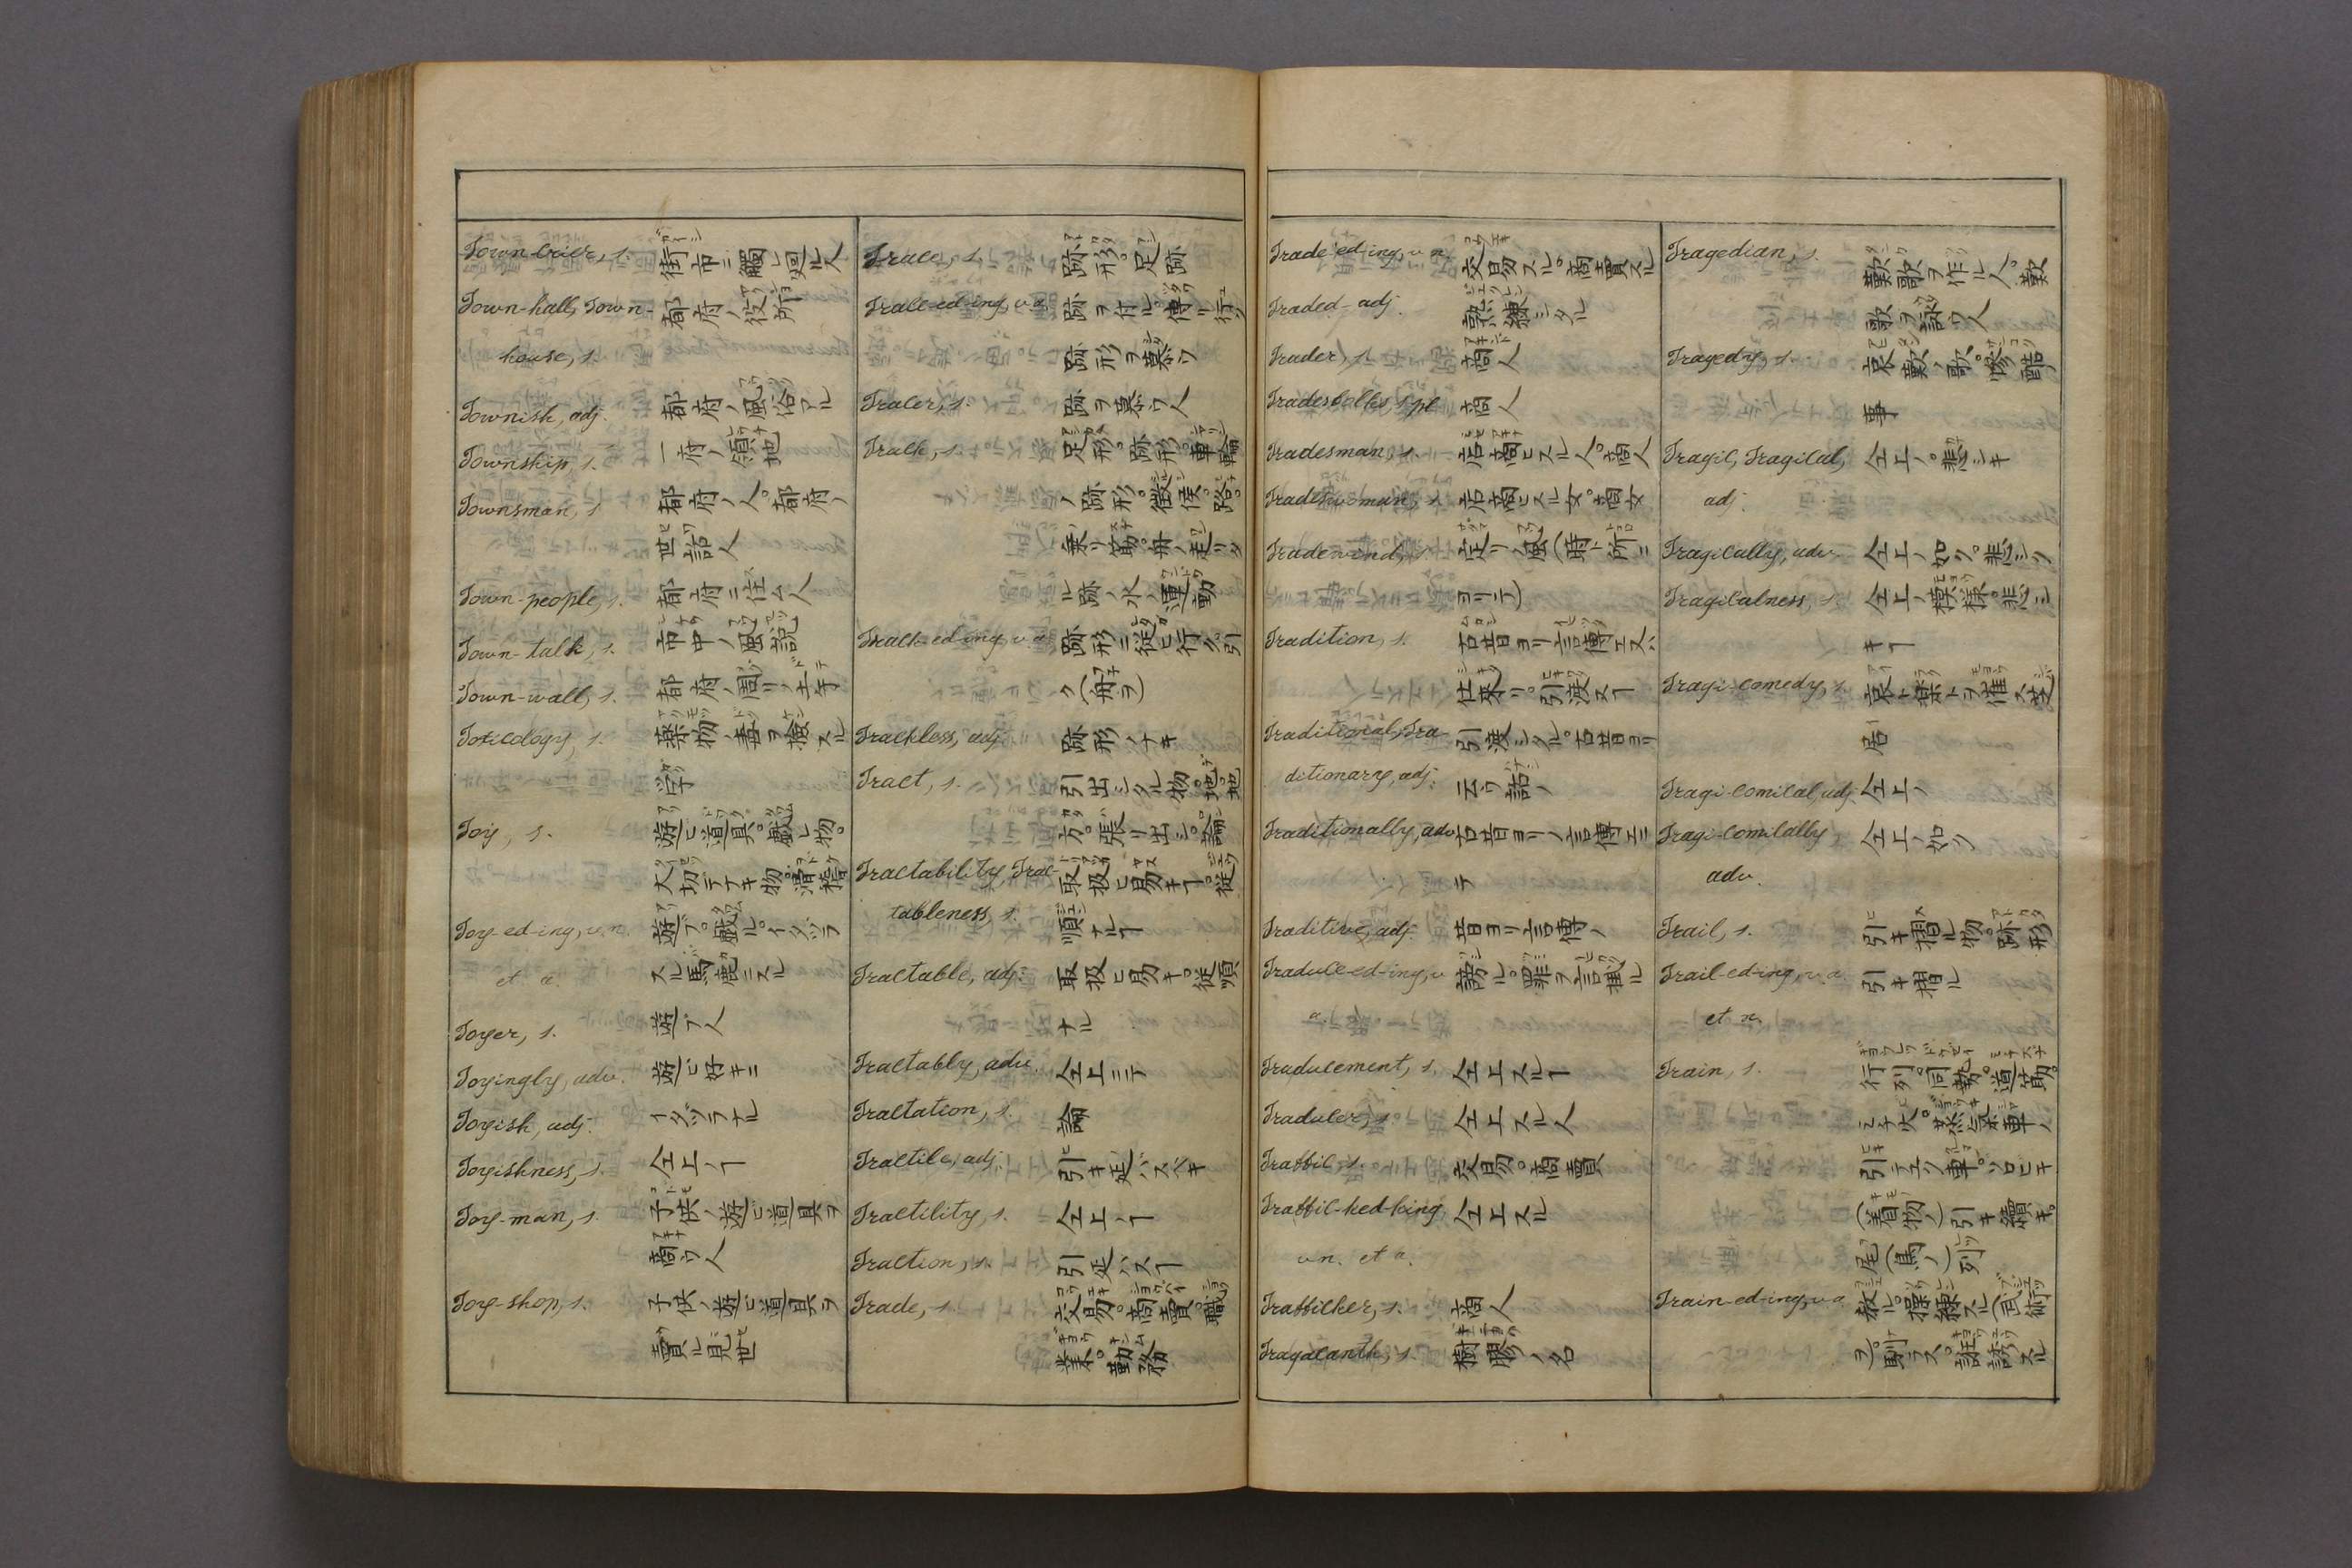 Town-crier, s. 街市ニ觸レ廻ル人
Town-hall, Town- 都府ノ役所
house, s.
Townish, adj. 都府ノ風俗ナル
Township, s. 一府ノ領地
Townsman, s. 都府ノ人。都府ノ
世話人
Town-people, s. 都府ニ住ム人
Town-talk, s. 市中ノ風説
Town-wall, s. 都府ノ周リノ土手
Toxicology, s. 藥物ノ毒ヲ撿スル
学
Toy, s. 遊ビ道具。戯レ物。
大切デナキ物。滑稽
Toy-ed-ing, v.n. 遊ブ。戯ル。イタヅラ
et a. スル馬鹿ニスル
Toyer, s. 遊ブ人
Toyingly, adv. 遊ビ好キニ
Toyish, adj. イタヅラナル
Toyishness, s. 仝上ノ𬼀
Toy-man, s. 子供ノ遊ビ道具ヲ
商フ人
Toy-shop, s. 子供ノ遊ビ道具ヲ
賣ル見世
Trace, s. 跡形。足跡
Trace-ed-ing, v.a. 跡ヲ付ル。傳ヒ行ク
跡形ヲ慕フ
Tracer, s. 跡ヲ慕フ人
Track, s. 足形。跡形。車輪
ノ跡形。徴候。路。
乗リ筋。舟ノ走リタ
ル跡ノ水ノ運動
Track-ed-ing, v.a. 跡形ニ従ヒ行ク。引
ク(舟ヲ)
Trackless, adj. 跡形ノナキ
Tract, s. 引出シタル物。地。地
方。張リ出シ。論
Tractability, Trac- 取扱ヒ易キ𬼀。従
tableness, s. 順ナル𬼀
Tractable, adj. 取扱ヒ易キ。従順
ナル
Tractably, adv. 仝上ニテ
Tractation, s. 論
Tractile, adj. 引キ延バスベキ
Tractility, s. 仝上ノ𬼀
Traction, s. 引延バス𬼀
Trade, s. 交易。商賣。職
業。勤務
Trade-ed-ing, v.a. 交易スル。商賣スル
Traded-adj. 熟練シタル
Trader, s. 商人
Tradesfolks, s.pl. 商人
Tradesman, s. 店商ヒスル人。商人
Tradeswoman, s. 店商ヒスル女。商女
Tradewind, s. 定リノ風(時ト所ニ
ヨリテ)
Tradition, s. 古昔ヨリ言傳ヱ。
仕來リ。引渡ス𬼀
Traditional, Tra- 引渡シタル。古昔ヨリ
ditionary, adj. 云フ話ノ
Traditionally, adv. 古昔ヨリノ言傳ヱニ
テ
Traditive, adj. 昔ヨリ言傳ノ
Traduce-ed-ing, v. 謗ル。罪ヲ言掛ル
a.
Traducement, s. 仝上スル𬼀
Traducer, s. 仝上スル人
Traffic, s. 交易。商賣
Traffic-ked-king, 仝上スル
v.n. et a.
Trafficker, s. 商人
Tragacanth, s. 樹膠ノ名
Tragedian, s. 歎歌ヲ作ル人。歎
歌ヲ謡フ人
Tragedy, s. 哀歎ノ歌。惨酷ノ
事
Tragic, Tragical, 仝上ノ。悲シキ
adj.
Tragically, adv. 仝上ノ如ク。悲シク
Tragicalness, s. 仝上ノ模様。悲シ
キ𬼀
Tragi-comedy, s. 哀ト樂トヲ催ス芝
居
Tragi-comical, adj. 仝上ノ
Tragi-comically, 仝上ノ如ク
adv.
Trail, s. 引キ摺ル物。跡形
Trail-ed-ing, v.a. 引キ摺ル
et n.
Train, s. 行列。同勢。道筋。
ミチ火。蒸気車ノ
引テユク車。ソロビキ
(着物ノ)引キ續キ。
尾(馬ノ)列
Train-ed-ing, v.a. 教ル。操練スル(武術
ヲ)。馴ラス。誑誘スル